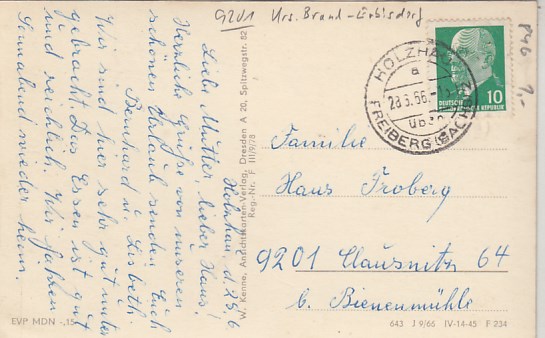 9201
P46
1,-
HOLZHAU
a
28.6.66.
über
FREIBERG (SACHS)
DEUTSCHE
REPUBLIK
10
Holzhau, d. 25.6
Liebe Mutter, lieber Hans!
Herzliche Grüße von unserem
schönen Urlaub senden Euch
Reinhard u. Lisbeth.
Wir sind hier sehr gut unter
gebracht. Das Essen ist gut
und reichlich. Wir fahren
Sonnabend wieder heim.
W. Kenne, Ansichtskarten-Verlag, Dresden A 20, Spitzwegstr. 82
Reg.-Nr. F III/9/8
Familie
Hans Froberg
9201 Clausnitz 64
b. Bienenmühle
EVP MDN -,15
643 J 9/66 IV-14-45 F 234